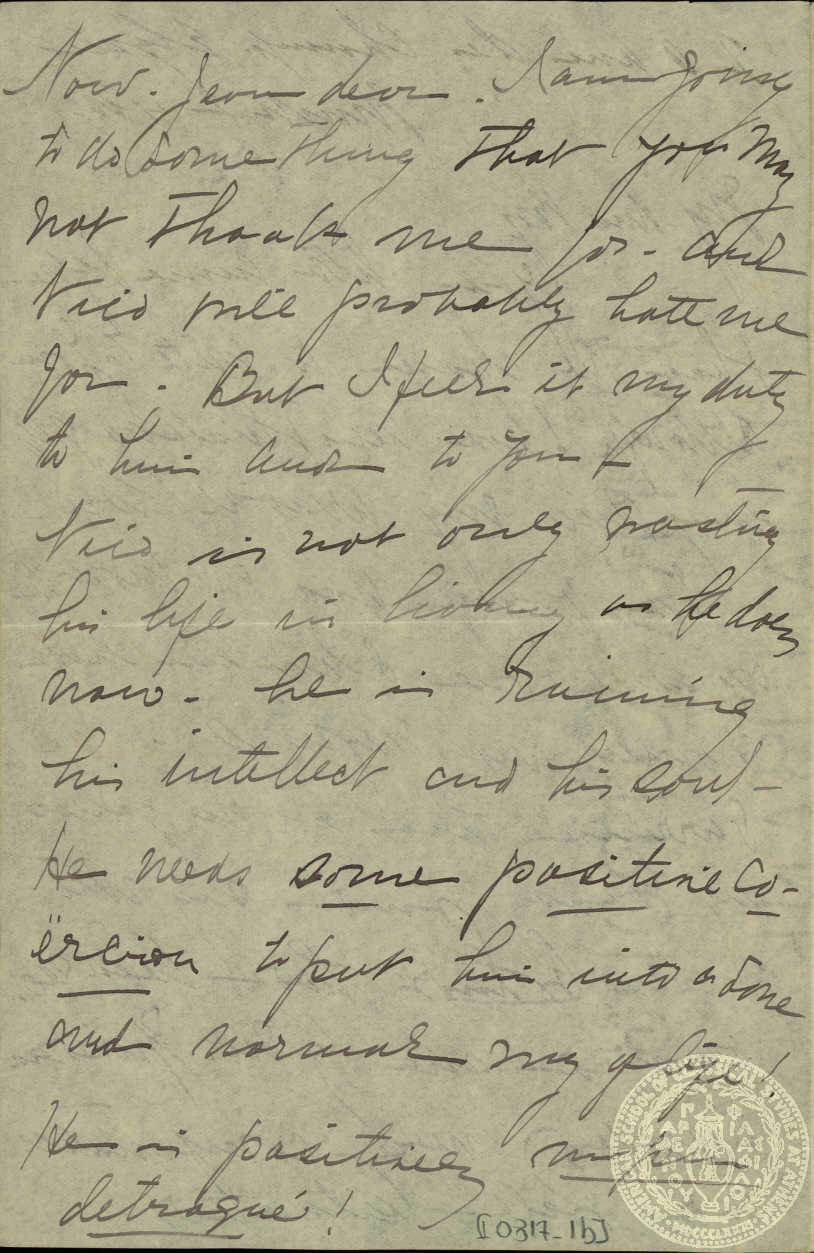 Now - Jean dear. I am going
to do something that you may
not thank me for - and
Nico will probably hate me
for. But I feel it my duty
to him and to you -
Nico is not only wasting
his life in living as he does
now - he is ruining
his intellect and his soul -
He needs some positive co-
ërcion to put him into a sane
and normal way of life!
He is positively un peu
detraqué!
[0317-1b]
AMERICAN SCHOOL OF CLASSICAL STUDIES AT ATHENS
ΠΑΡΘΕΝΟΥ ΦΙΛΑΣ ΕΠΙΟΙ
MDCCCLXXXI